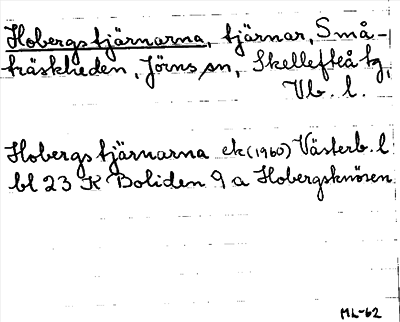 Hobergstjärnarna, tjärnar, Små-
träskheden, Jörns sn, Skellefteå tg,
Vb. l.
Hobergstjärnarna ek (1960) Västerb. l
bl 23 K Boliden 9 a Hobergsknösen
ML-62